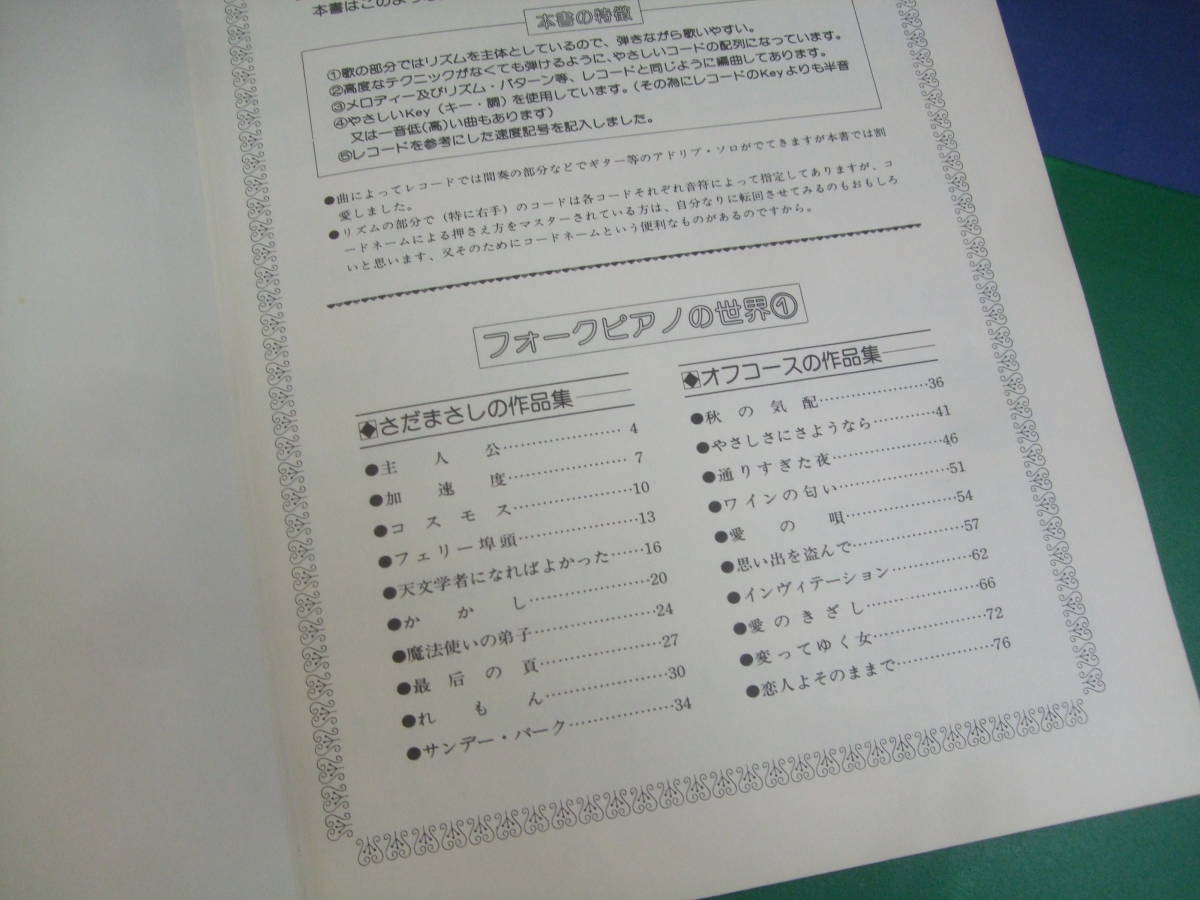 本書はこのよ
本書の特徴
①歌の部分ではリズムを主体としているので、弾きながら歌いやすい。
②高度なテクニックがなくても弾けるように、やさしいコードの配列になっています。
③メロディー及びリズム・パターン等、レコードと同じように編曲してあります。
④やさしいKey(キー・調)を使用しています。(その為にレコードのKeyよりも半音
又は一音低(高)い曲もあります)
⑤レコードを参考にした速度記号を記入しました。
●曲によってレコードでは間奏の部分などでギター等のアドリブ・ソロがでてきますが本書では割
愛しました。
●リズムの部分で(特に右手)のコードは各コードそれぞれ音符によって指定してありますが、コ
ードネームによる押さえ方をマスターされている方は、自分なりに転回させてみるのもおもしろ
いと思います、又そのためにコードネームという便利なものがあるのですから。
フォークピアノの世界①
◆さだまさしの作品集
●主人公……………………4
●加速度……………………7
●コスモス…………………10
●フェリー埠頭……………13
●天文学者になればよかった……16
●かかし……………………20
●魔法使いの弟子…………24
●最后の頁…………………27
●れもん……………………30
●サンデー・パーク………34
◆オフコースの作品集
●秋の気配…………………36
●やさしさにさようなら…………41
●通りすぎた夜……………46
●ワインの匂い……………51
●愛の唄……………………54
●思い出を盗んで…………57
●インヴィテーション……………62
●愛のきざし………………66
●変ってゆく女……………72
●恋人よそのままで………………76